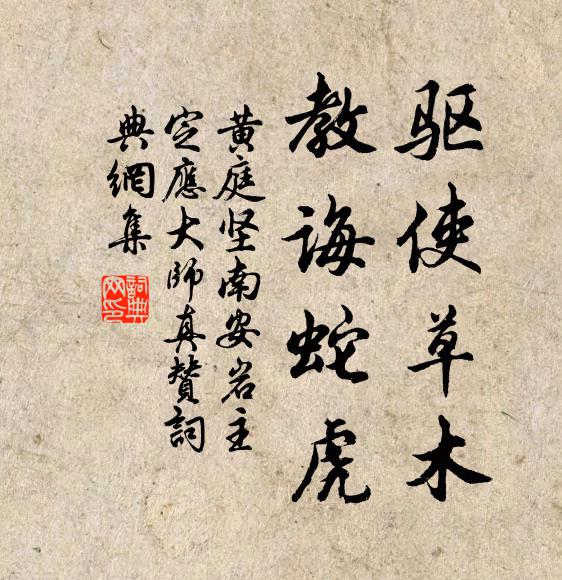 驱使草木
教诲蛇虎
黄庭坚南安岩主
定應大师真赞詞
典網集
詞典
网印